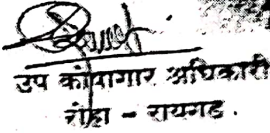 उप कोषागार अधिकारी
रोहा - रायगड.